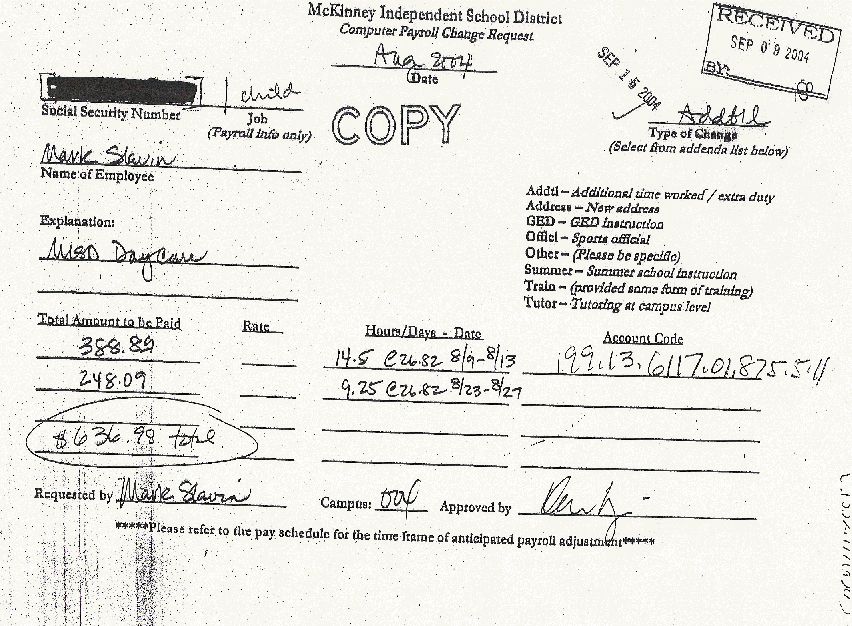 McKinney Independent School District
Computer Payroll Change Request
RECEIVED
SEP 0 9 2004
BY:
Aug 2004
Date
SEP 15 2004
Social Security Number
child
Job
(Payroll info only)
COPY
Addtl
Type of Change
(Select from addenda list below)
Mark Slavin
Name of Employee
Addtl – Additional time worked / extra duty
Address – New address
GED – GED instruction
Offici – Sports official
Other – (Please be specific)
Summer – Summer school instruction
Train – (provided some form of training)
Tutor – Tutoring at campus level
Explanation:
MISD DayCare
Total Amount to be Paid Rate Hours/Days - Date Account Code
388.89 14.5 @26.82 8/9-8/13 199.13.6117.01.875.5.11
248.09 9.25 @26.82 8/23-8/27
$636.98 total
Requested by Mark Slavin Campus: 004 Approved by
*****Please refer to the pay schedule for the time frame of anticipated payroll adjustment*****